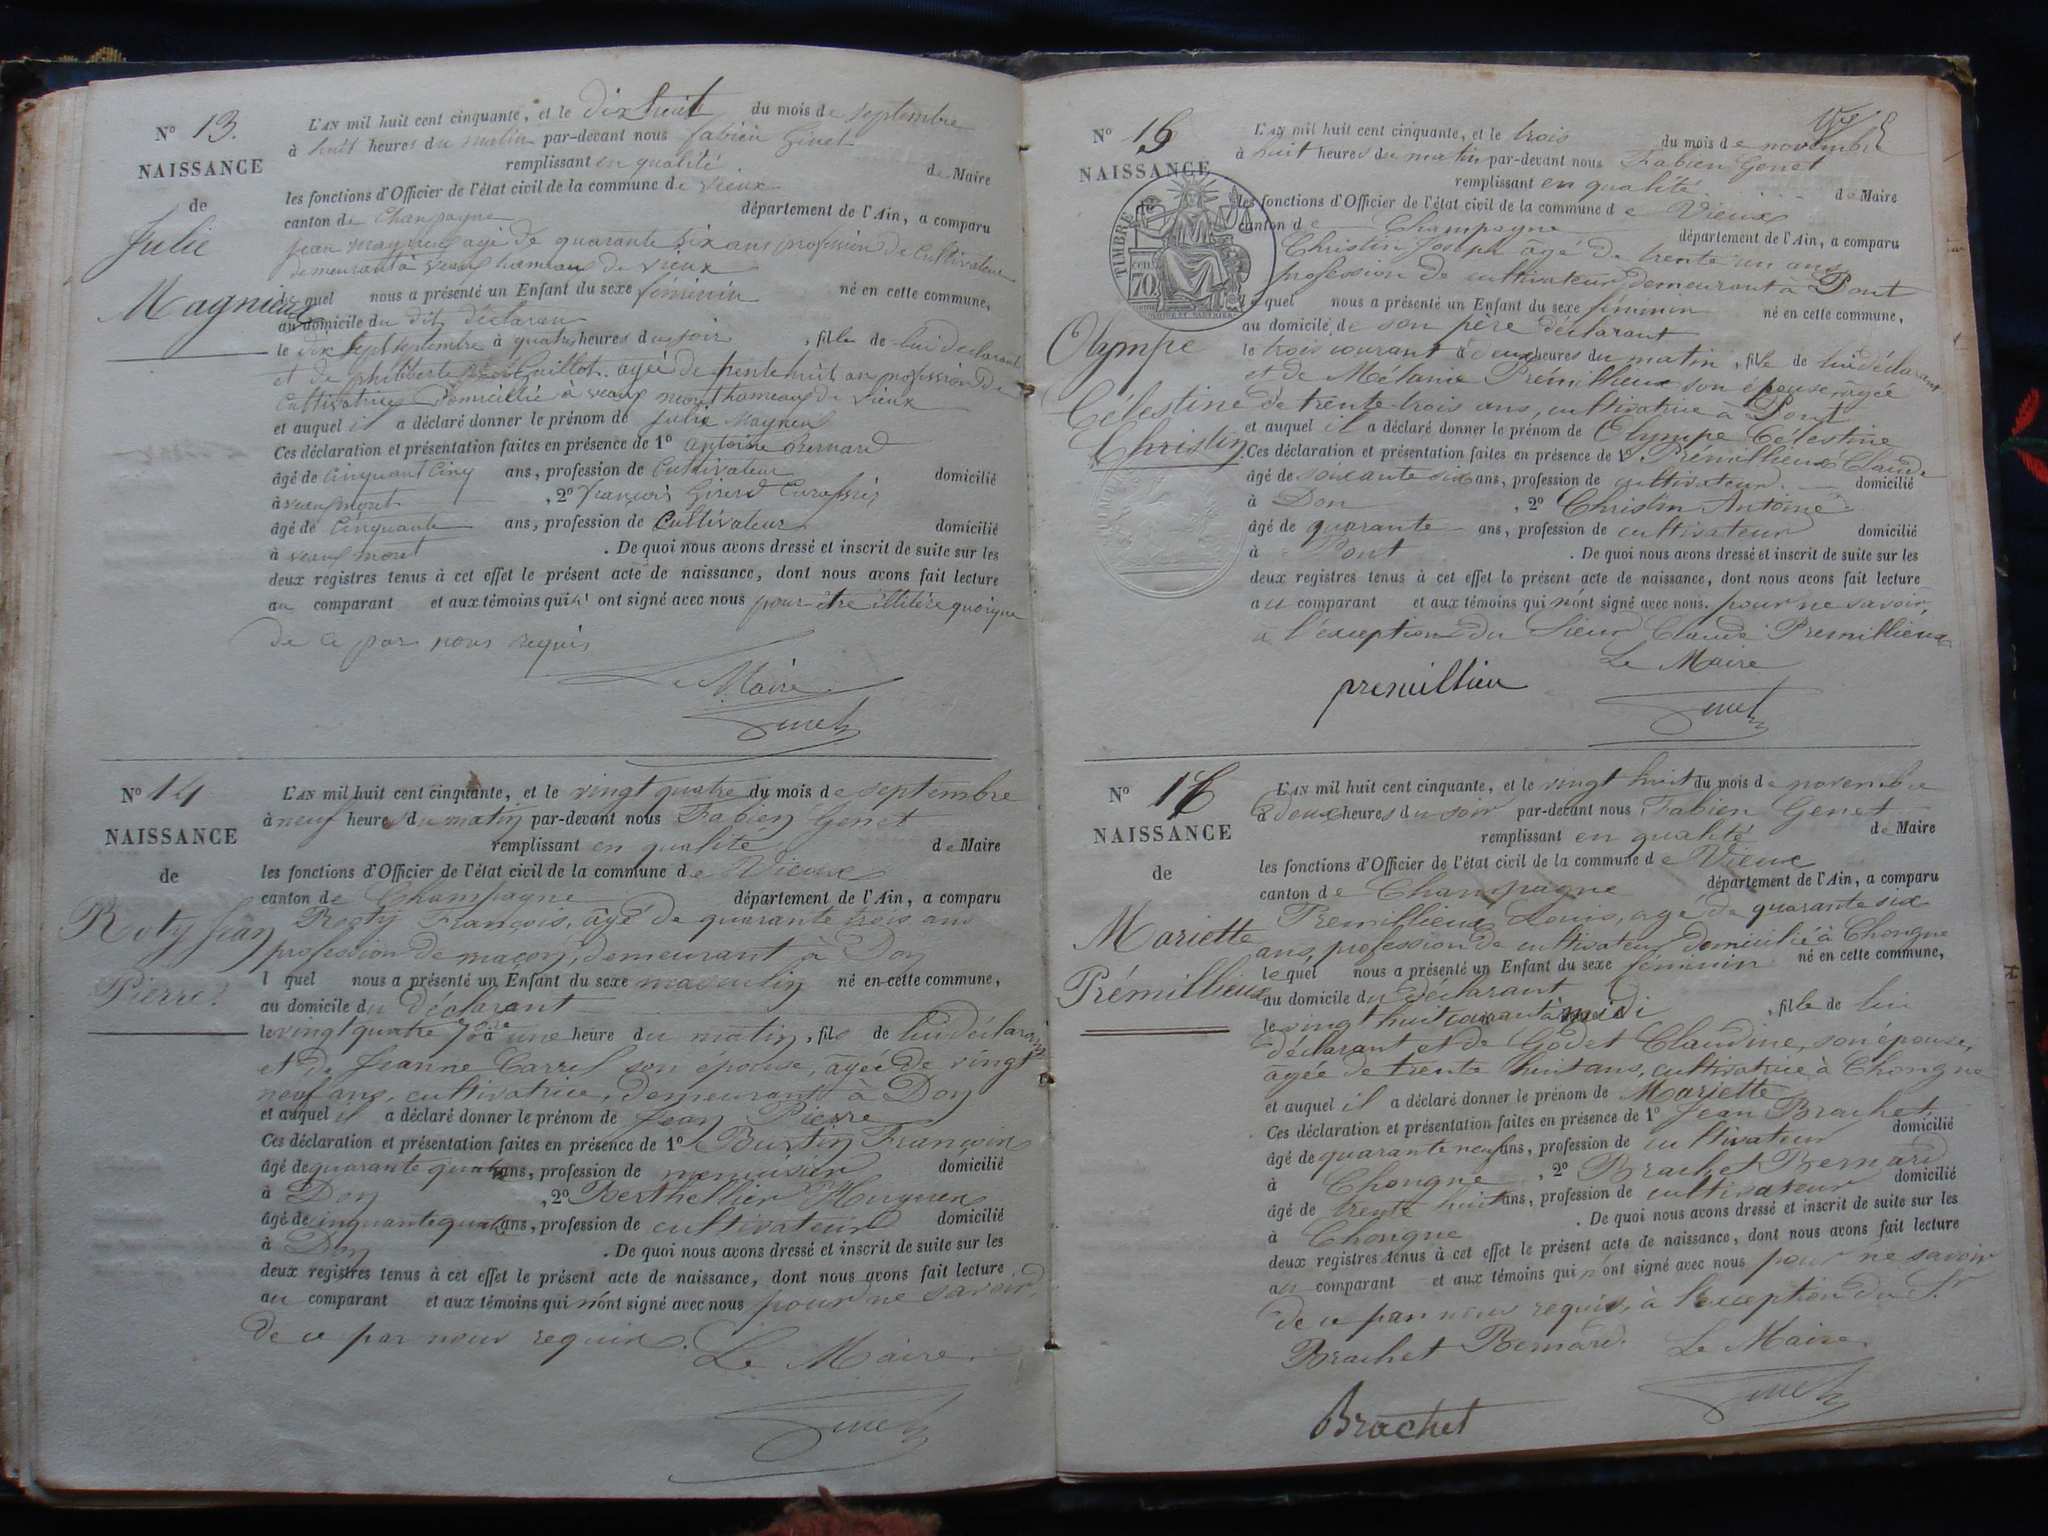 N° 13.
NAISSANCE
de
Julie
Magnieux
L'AN mil huit cent cinquante, et le dix huit du mois de septembre
à huit heures du matin par-devant nous fabien Genet
remplissant en qualité de Maire
les fonctions d'Officier de l'état civil de la commune de Vieux
canton de Champagne département de l'Ain, a comparu
jean agé de quarante six ans profession de Cultivateur
demeurant à hameau de vieux
lequel nous a présenté un Enfant du sexe féminin né en cette commune,
au domicile du dit déclaran
le dix sept septembre à quatre heures du soir, fille de lui déclarant
et de philiberte Guillot. agée de trente huit an profession de
Cultivatrice domicillié à hameau de vieux
et auquel il a déclaré donner le prénom de julie
Ces déclaration et présentation faites en présence de 1° antoine Bernard
âgé de Cinquant Cinq ans, profession de Cultivateur domicilié
à , 2° françois Girerd
âgé de Cinquante ans, profession de Cultivateur domicilié
à . De quoi nous avons dressé et inscrit de suite sur les
deux registres tenus à cet effet le présent acte de naissance, dont nous avons fait lecture
au comparant et aux témoins qui n' ont signé avec nous pour être illitére quoique
de ce par nous requis
Le Maire
Genet
N° 14
NAISSANCE
de
Roty Jean
Pierre.
L'AN mil huit cent cinquante, et le vingt quatre du mois de septembre
à neuf heures du matin par-devant nous Fabien Genet
remplissant en qualité de Maire
les fonctions d'Officier de l'état civil de la commune de Vieux
canton de Champagne département de l'Ain, a comparu
Rosty François, âgé de quarante trois ans
profession de maçon, demeurant à Don
l quel nous a présenté un Enfant du sexe masculin né en cette commune,
au domicile du déclarant
le vingt quatre 7bre à une heure du matin, fils de lui déclarant
et de Jeanne Carrel son épouse, âgée de vingt
neuf ans, cultivatrice, demeurant à Don
et auquel il a déclaré donner le prénom de Jean Pierre
Ces déclaration et présentation faites en présence de 1° Burtin François
âgé de quarante quatre ans, profession de menuisier domicilié
à Don, 2° Berthellier Hugues
âgé de cinquante quatre ans, profession de cultivateur domicilié
à Don . De quoi nous avons dressé et inscrit de suite sur les
deux registres tenus à cet effet le présent acte de naissance, dont nous avons fait lecture
au comparant et aux témoins qui n'ont signé avec nous pour ne savoir,
de ce par nous requis. Le Maire.
Genet
N° 15
NAISSANCE
TIMBRE
cen. 70
Olympe
Célestine
Christin
L'AN mil huit cent cinquante, et le trois du mois de novembre
à huit heures du matin par-devant nous Fabien Genet
remplissant en qualité de Maire
les fonctions d'Officier de l'état civil de la commune de Vieux
canton de Champagne département de l'Ain, a comparu
Christin Joseph âgé de trente un ans
profession de cultivateur, demeurant à Pont
lequel nous a présenté un Enfant du sexe féminin né en cette commune,
au domicile de son père déclarant
le trois courant à deux heures du matin, fille de lui déclarant
et de Mélanie Prémillieux son épouse, agée
de trente-trois ans, cultivatrice à Pont
et auquel il a déclaré donner le prénom de Olympe Célestine
Ces déclaration et présentation faites en présence de 1° Prémillieux Claude
âgé de soixante six ans, profession de cultivateur domicilié
à Don, 2° Christin Antoine
âgé de quarante ans, profession de cultivateur domicilié
à Pont . De quoi nous avons dressé et inscrit de suite sur les
deux registres tenus à cet effet le présent acte de naissance, dont nous avons fait lecture
au comparant et aux témoins qui n'ont signé avec nous. pour ne savoir,
à l'exception du Sieur Claude Premillieux
Le Maire
premillieu
Genet
N° 16
NAISSANCE
de
Mariette
Prémillieux
L'AN mil huit cent cinquante, et le vingt huit du mois de novembre
à deux heures du soir par-devant nous Fabien Genet
remplissant en qualité de Maire
les fonctions d'Officier de l'état civil de la commune de Vieux
canton de Champagne département de l'Ain, a comparu
Premillieux Louis, agé de quarante six
ans, profession de cultivateur domicilié à Chongne
lequel nous a présenté un Enfant du sexe féminin né en cette commune,
au domicile du déclarant
le vingt huit courant à midi, fille de lui
déclarant et de Godet Claudine, son épouse,
âgée de trente huit ans, cultivatrice à Chongne
et auquel il a déclaré donner le prénom de Mariette
Ces déclaration et présentation faites en présence de 1° Jean Brachet
âgé de quarante neuf ans, profession de cultivateur domicilié
à Chongne, 2° Brachet Bernard
âgé de trente huit ans, profession de cultivateur domicilié
à Chongne . De quoi nous avons dressé et inscrit de suite sur les
deux registres tenus à cet effet le présent acte de naissance, dont nous avons fait lecture
au comparant et aux témoins qui n'ont signé avec nous pour ne savoir
de ce par nous requis, à l'exception du Sr
Brachet Bernard. Le Maire.
Brachet
Genet